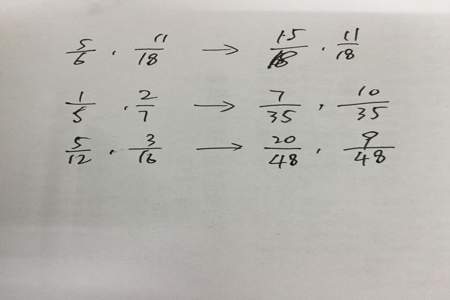 5/6 , 11/18 → 15/18 , 11/18
1/5 , 2/7 → 7/35 , 10/35
5/12 , 3/16 → 20/48 , 9/48